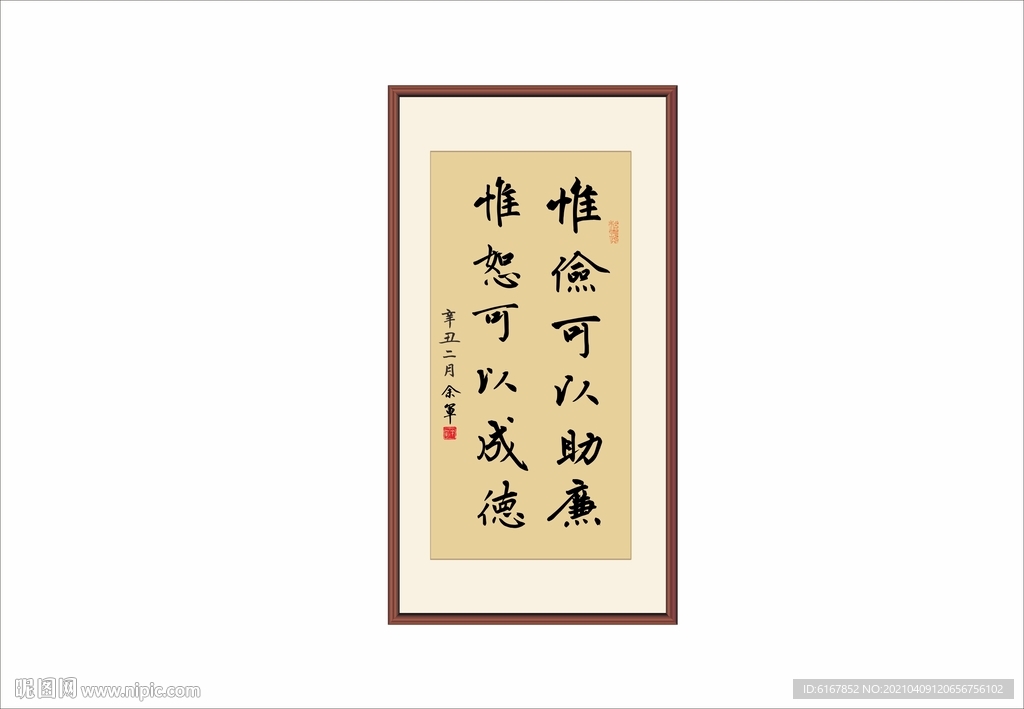 惟儉可以助廉
惟恕可以成德
辛丑二月余軍
昵图网 www.nipic.com
ID:6167852 NO:20210409120656756102